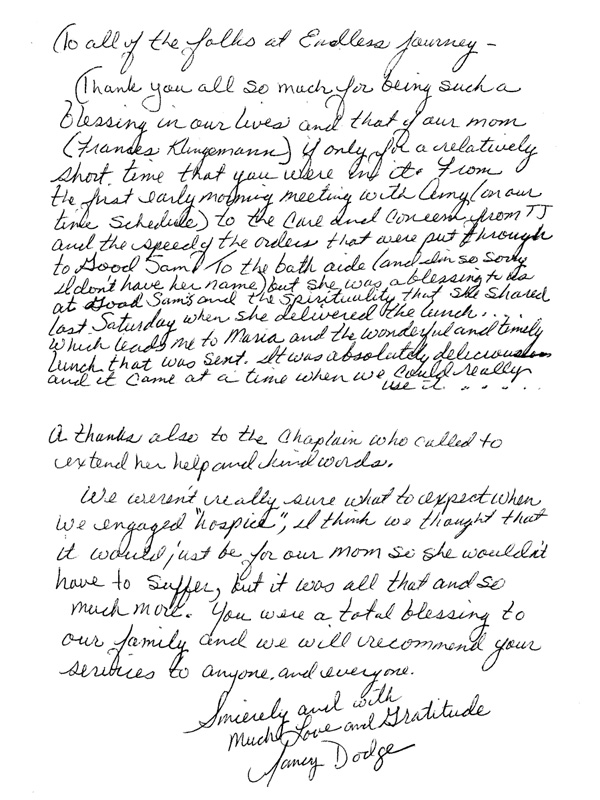 To all of the folks at Endless Journey -
Thank you all so much for being such a
blessing in our lives and that of our mom
(Frances Klingemann) if only for a relatively
short time that you were in it. From
the first early morning meeting with Amy (on our
time schedule) to the care and concern from TJ
and the speedy the orders that were put through
to Good Sam! To the bath aide (and I'm so sorry
I don't have her name) but she was a blessing to us
at Good Sam's and the Spirituality that she shared
last Saturday when she delivered the lunch....
which leads me to Maria and the wonderful and timely
lunch that was sent. It was absolutely delicious
and it came at a time when we could really
use it.....
A thanks also to the Chaplain who called to
extend her help and kind words.
We weren't really sure what to expect when
we engaged "hospice", I think we thought that
it would just be for our mom so she wouldn't
have to suffer, but it was all that and so
much more. You were a total blessing to
our family and we will recommend your
services to anyone and everyone.
Sincerely and with
Much Love and Gratitude
Nancy Dodge